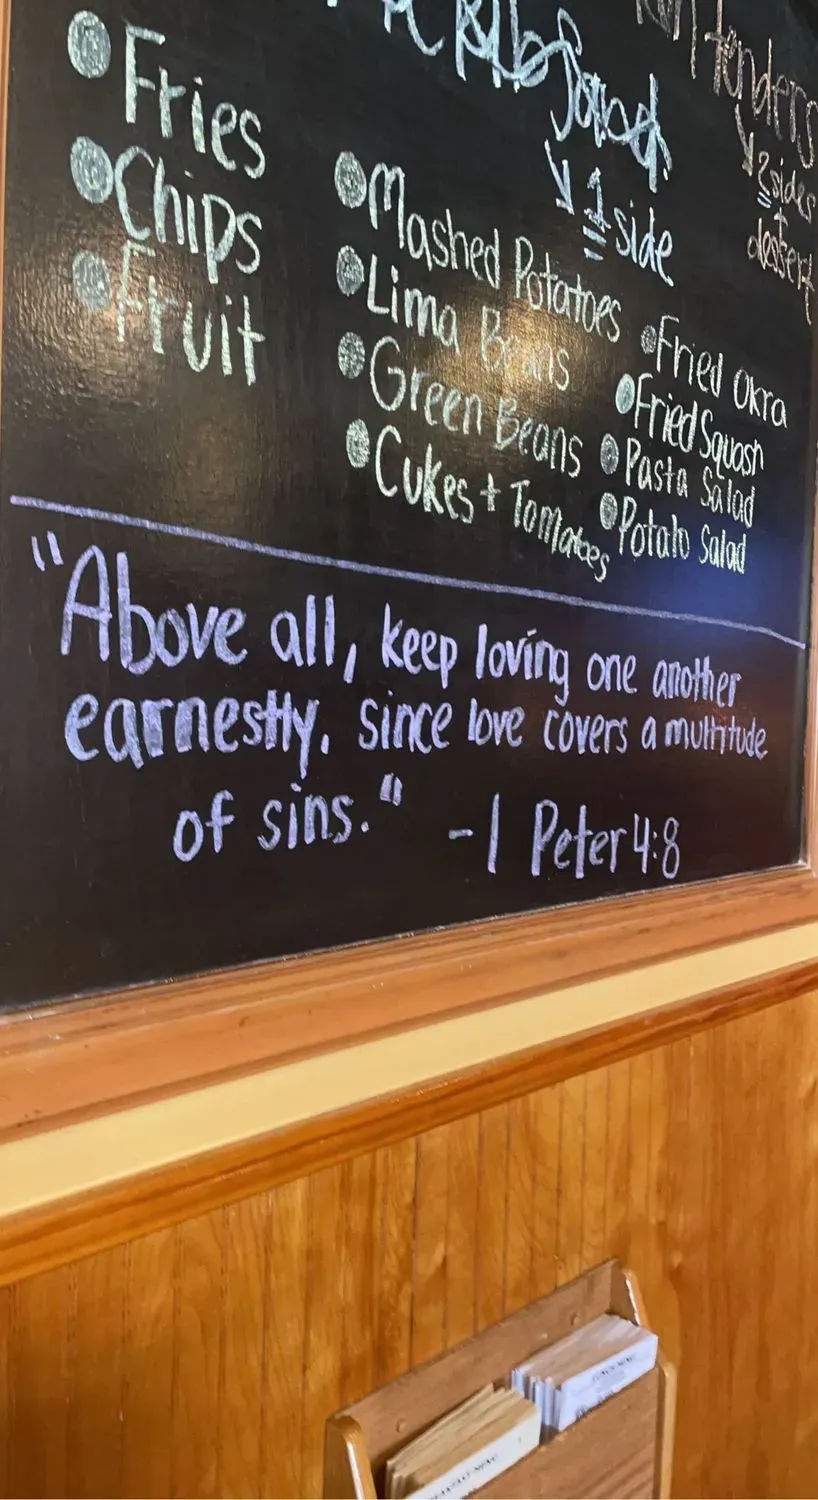 Tenders
2 sides
+
dessert
1 side
Fries
Chips
Fruit
Mashed Potatoes
Lima Beans
Green Beans
Cukes + Tomatoes
Fried Okra
Fried Squash
Pasta Salad
Potato Salad
"Above all, keep loving one another
earnestly, since love covers a multitude
of sins." - 1 Peter 4:8